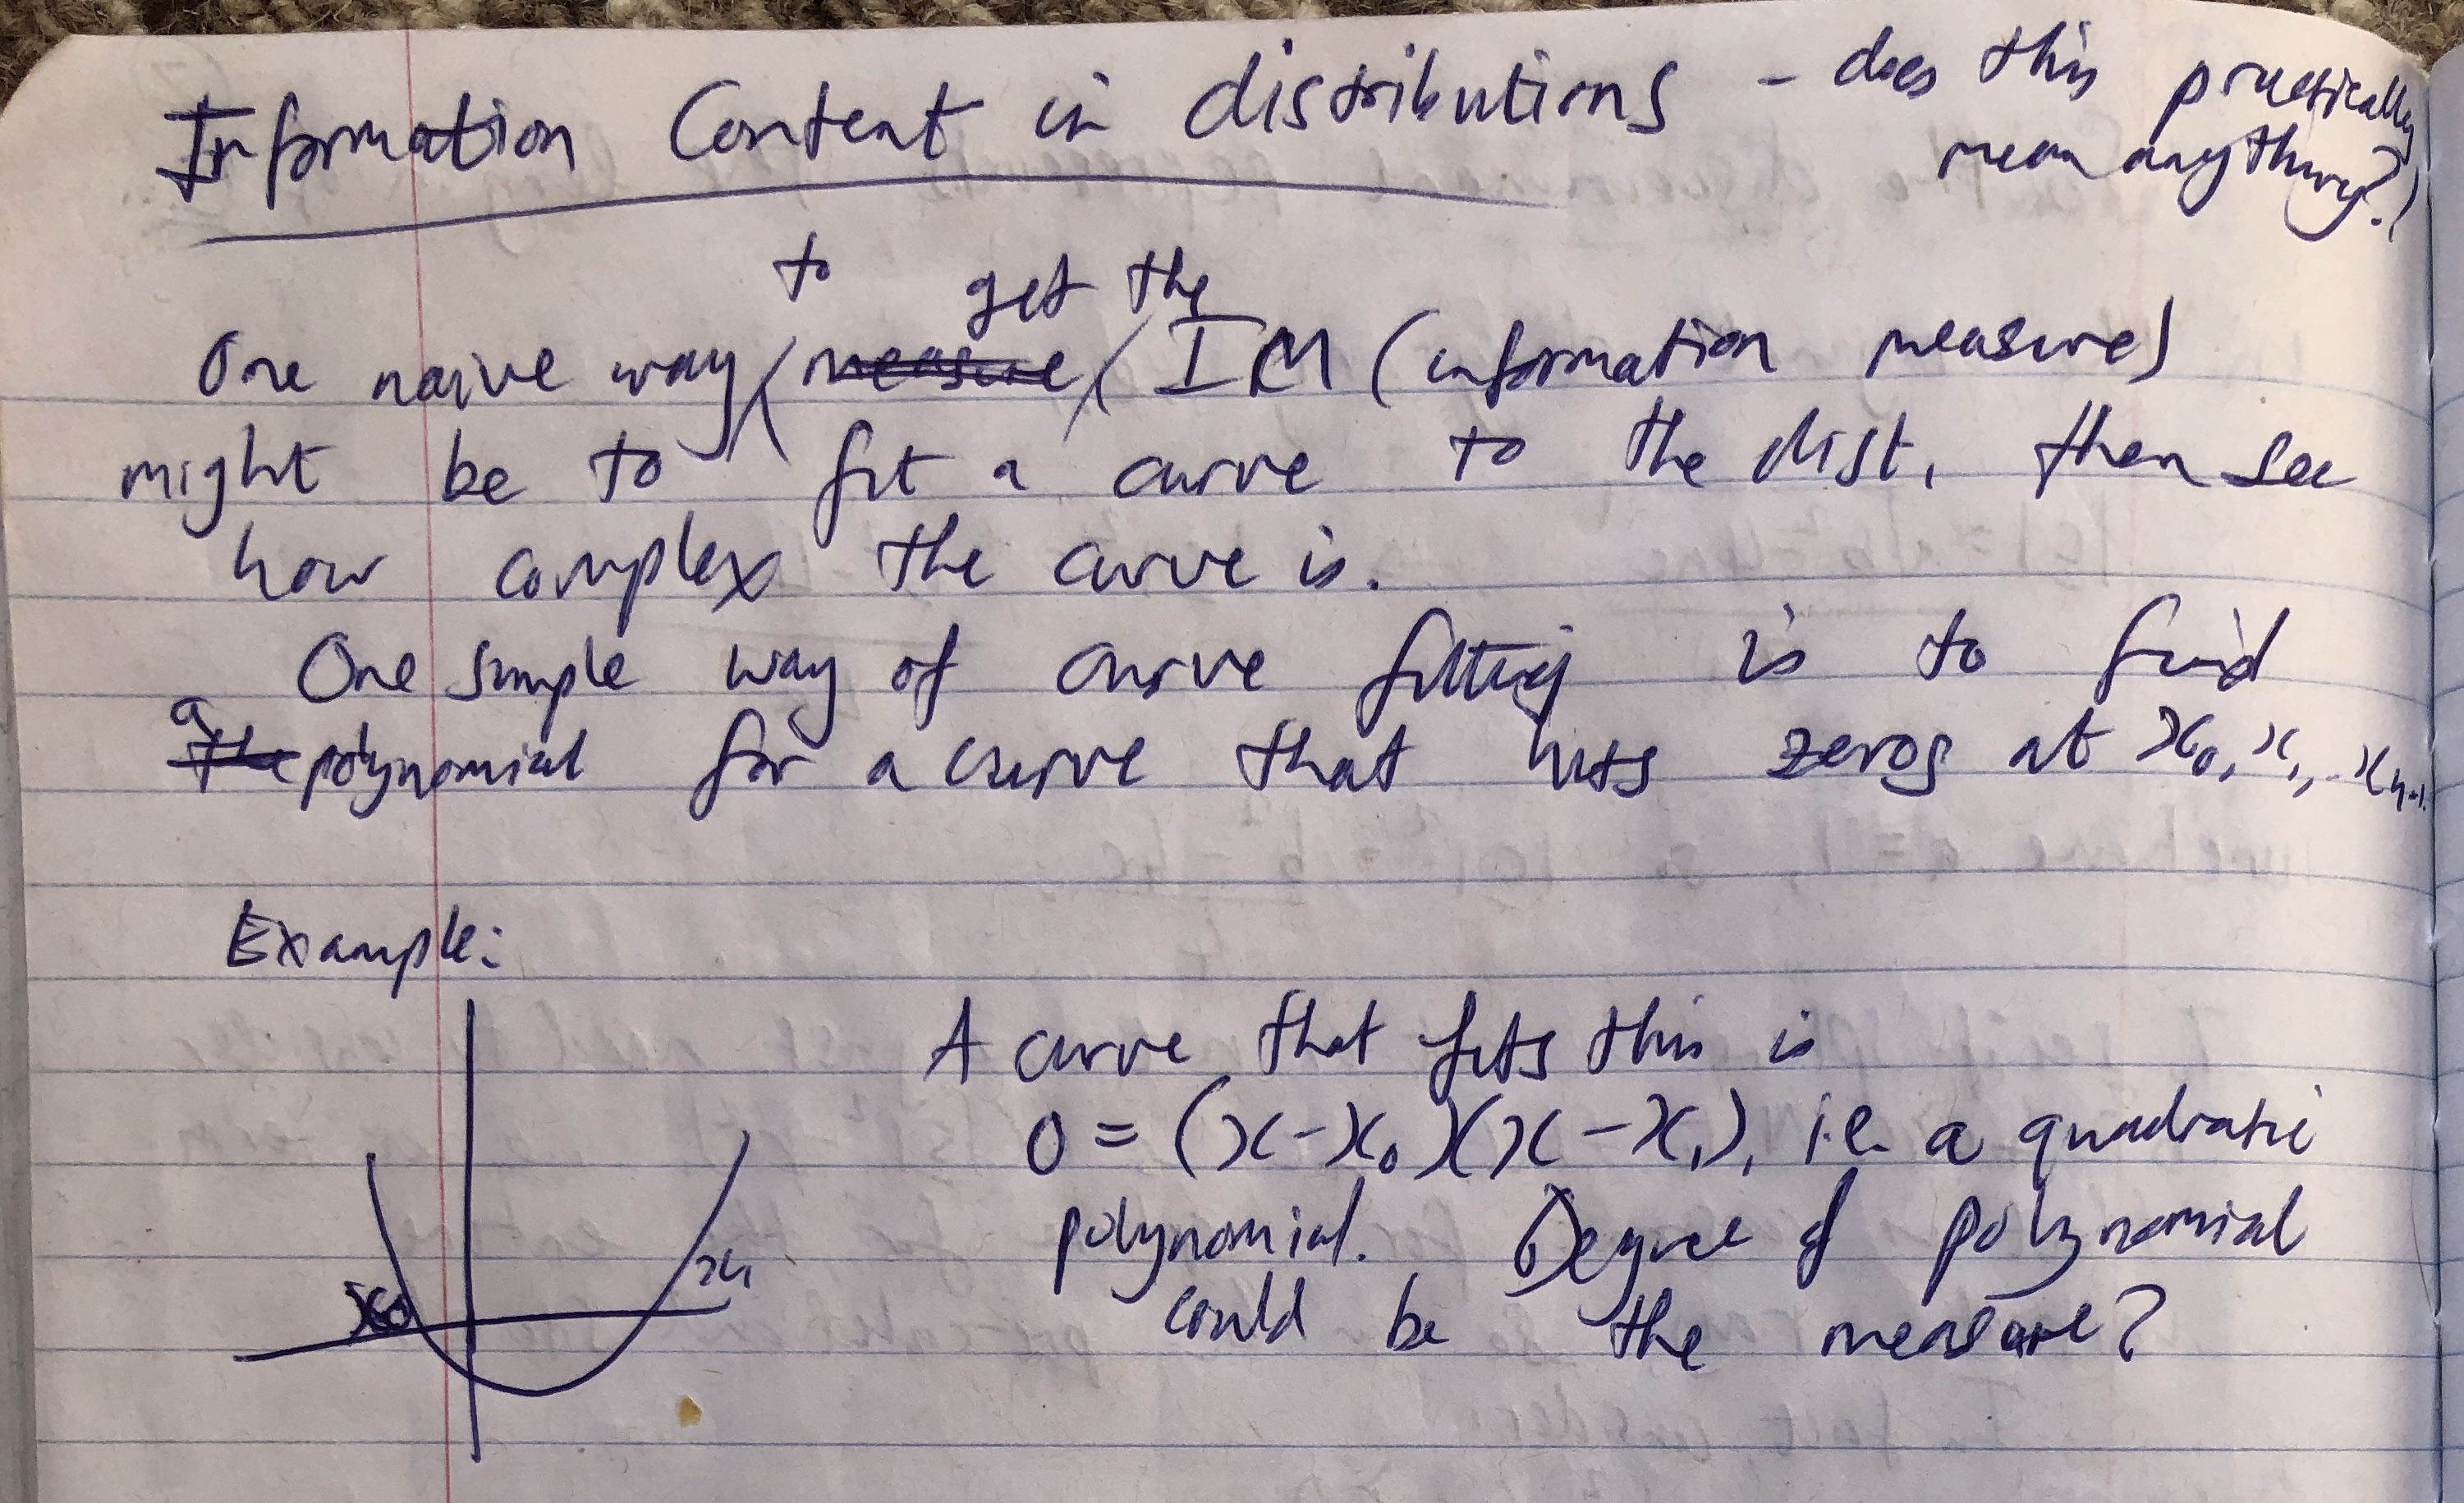 Information Content in distributions - does this practically
mean anything?)
to get the
One naive way measure IM (information measure)
might be to fit a curve to the dist, then see
how complex the curve is.
One simple way of curve fitting is to find
a
the polynomial for a curve that hits zeros at x₀, x₁, .. xₙ₋₁.
Example:
A curve that fits this is
0 = (x-x₀)(x-x₁), i.e. a quadratic
polynomial. Degree of polynomial
could be the measure?
x₀
x₁